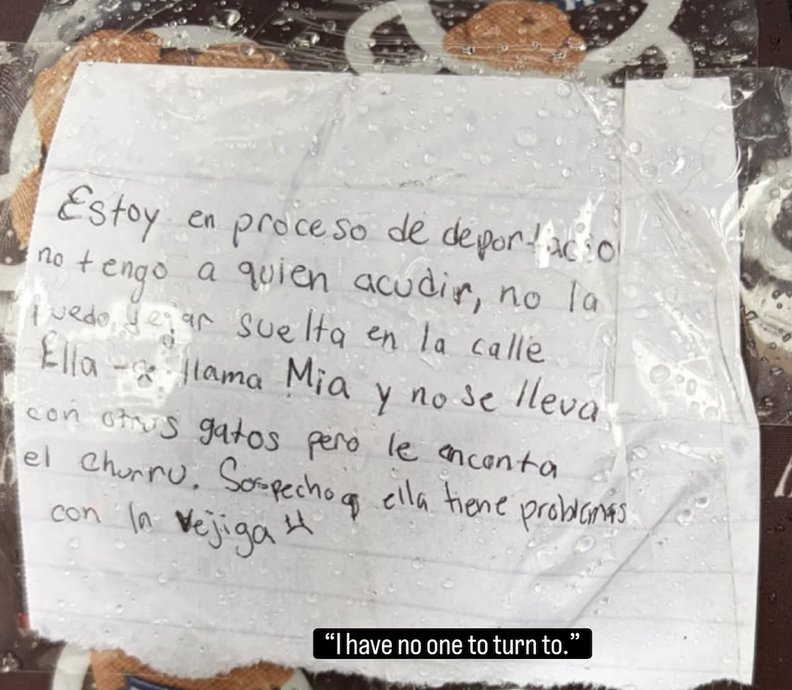 Estoy en proceso de deportacio
no tengo a quien acudir, no la
puedo dejar suelta en la calle
Ella se llama Mia y no se lleva
con otros gatos pero le encanta
el churru. Sospecho q ella tiene problemas
con la vejiga
“I have no one to turn to.”